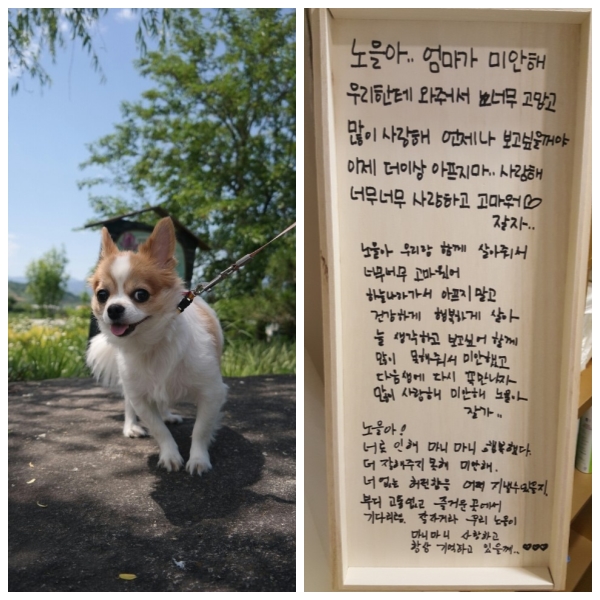 노을아.. 엄마가 미안해
우리한테 와주어서 너무 고맙고
많이 사랑해 언제나 보고싶을꺼야
이제 더이상 아프지마.. 사랑해
너무너무 사랑하고 고마워♡
잘자..
노을아 우리랑 함께 살아줘서
너무너무 고마웠어
하늘나라가서 아프지말고
건강하게 행복하게 살아
늘 생각하고 보고싶어 함께
많이 못해줘서 미안했고
다음생에 다시 꼭만나자
많이 사랑해 미안해 노을아
잘가..
노을아!
너로 인해 마니 마니 행복했다.
더 잘해주지 못해 미안해.
너 없는 허전함을 어찌
부디 고통없고 즐거운 곳에서
기다려줘. 우리 노을이
마니마니 사랑하고
항상 기억하고 있을께..♥♥♥